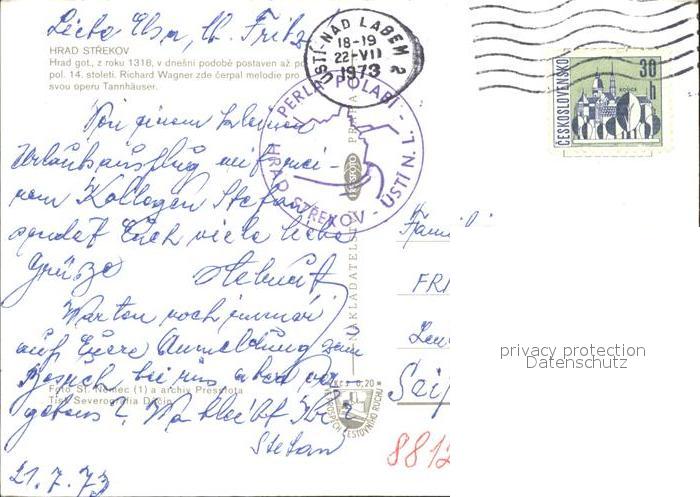 Liebe Elsa, lb. Fritz
HRAD STŘEKOV
Hrad got, z roku 1318, v dnešní podobě postaven až po
pol. 14. století. Richard Wagner zde čerpal melodie pro
svou operu Tannhäuser.
ÚSTÍ NAD LABEM 2
18-19
22-VII
1973
PERLA POLABÍ - HRAD STŘEKOV - ÚSTÍ N. L.
ČESKOSLOVENSKO
30 h
Von einem kleinen
Urlaubsausflug mit mei-
nem Kollegen Stefan
sendet Euch viele liebe
Grüsse Helmut
Warten noch immer
auf Euere Anmeldung zum
Besuch bei uns
Wo bleibt Ihr?
Stefan
21.7.73
Foto St. Němec (1) a archiv Pressfota
Tisk Severografia Děčín
Kčs 0,20
PRESSFOTO
NAKLADATELSTVÍ
Famil
FRI
Seif
8812
privacy protection
Datenschutz